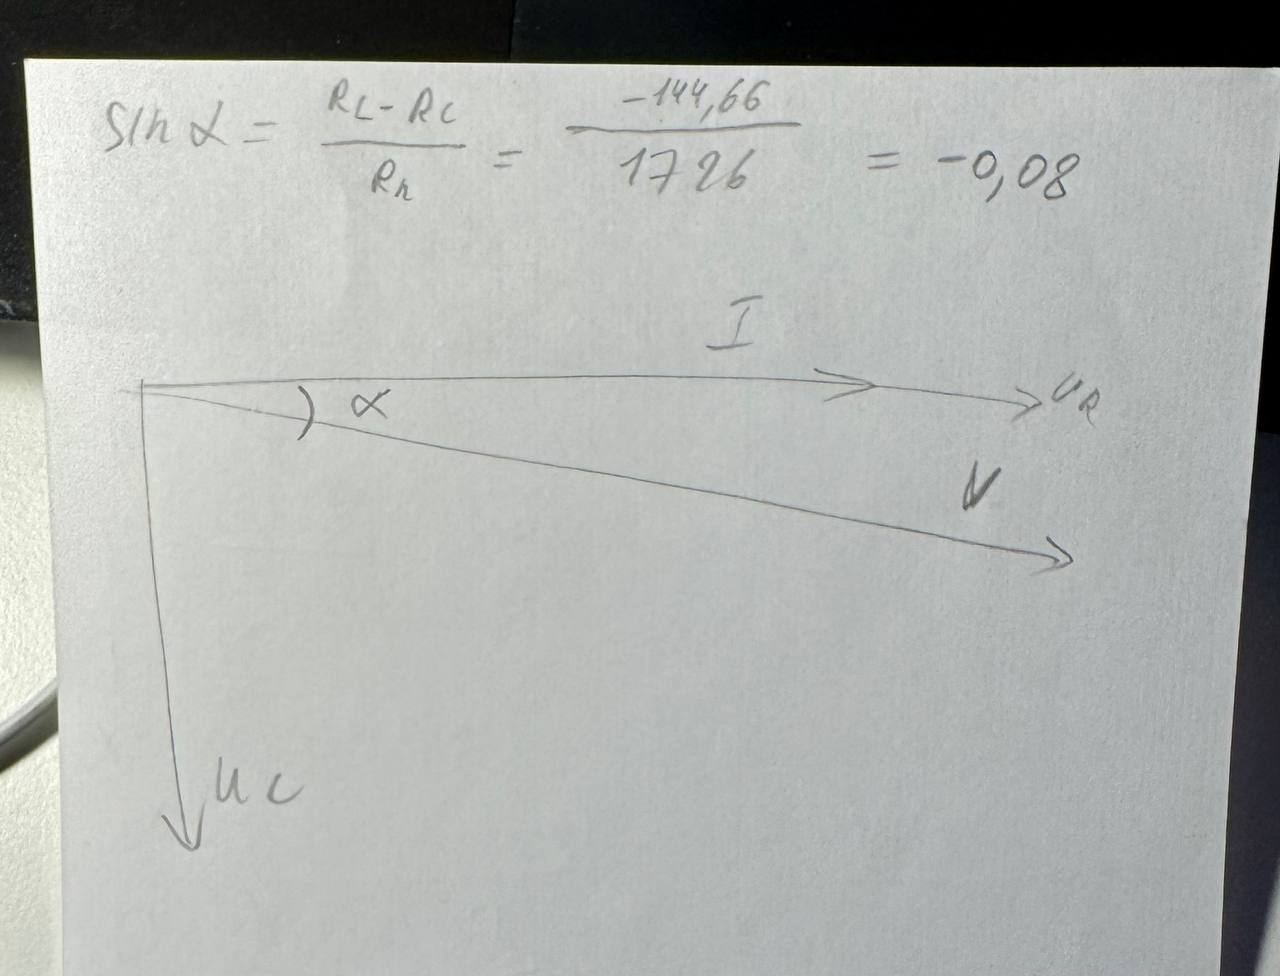 sin α = (RL - RC) / Rn = -144,66 / 1726 = -0,08
I
α
UR
U
UC